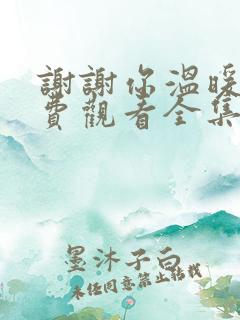 謝謝你溫暖
費觀看全集
墨沐子白
未经同意禁止转载